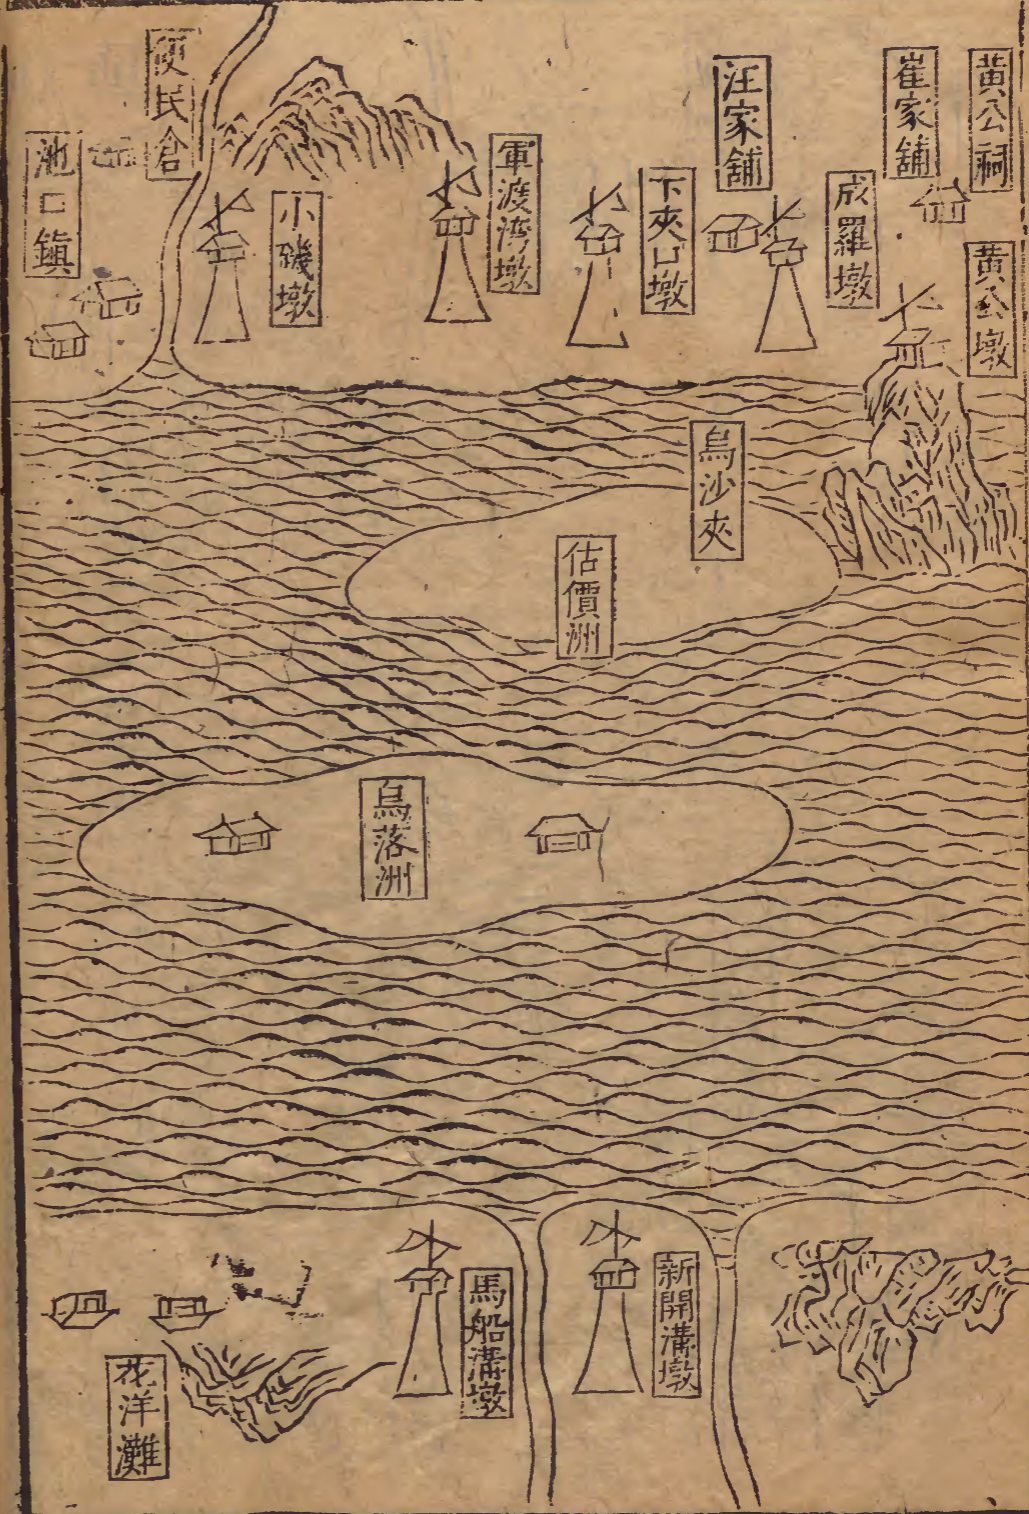 黃公祠
崔家舖
黄公墩
汪家舖
成羅墩
下夾口墩
軍渡湾墩
小磯墩
便民倉
池口鎮
烏沙夾
估價洲
烏落洲
新開溝墩
馬船溝墩
花洋灘